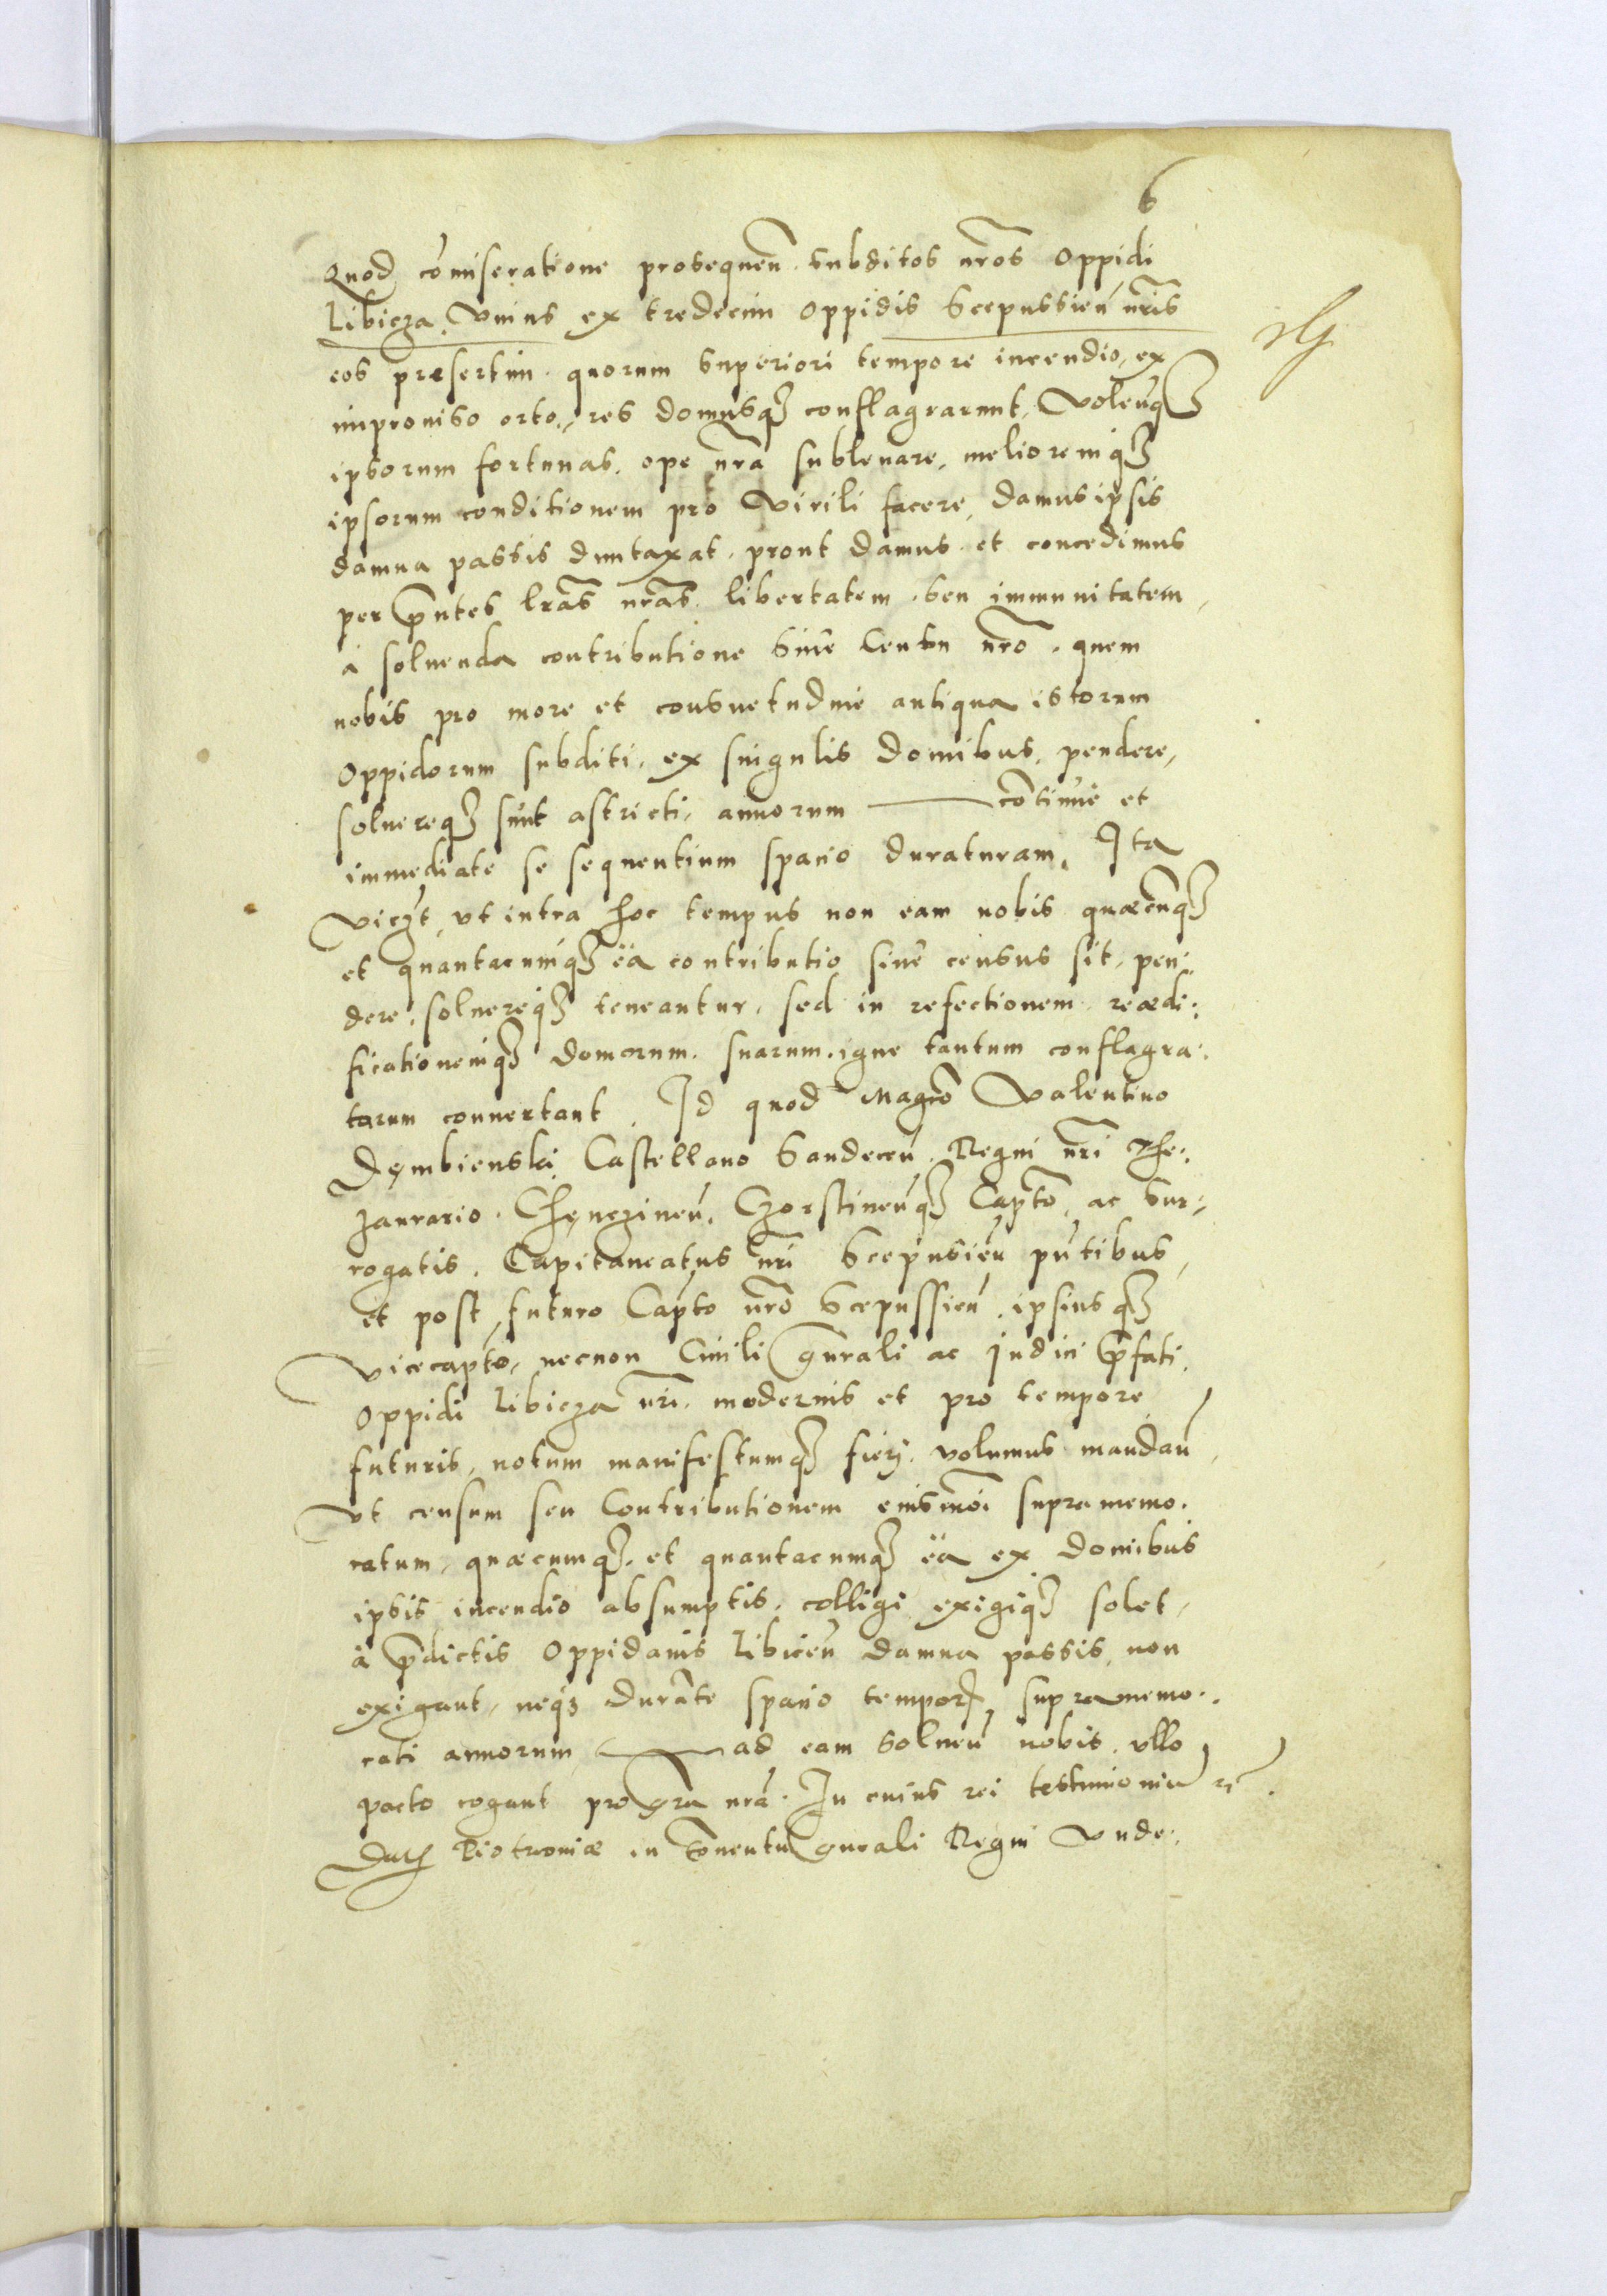 6
Quod com̄iseratione prosequen̄ subditos nr̄os Oppidi
Libicza, vnius ex tredecim Oppidis Scepussien̄ nr̄is
eos præsertim, quorum superiori tempore incendio, ex
improuiso orto, res domusq3 conflagrarunt, volen̄q3
ipsorum fortunas, ope nr̄a subleuare, melioremq3
ipsorum conditionem pro virili facere, damus ipsis
damna passis duntaxat, prout damus et concedimus
per pn̄tes lr̄as nr̄as libertatem seu immunitatem,
à soluenda contributione siue Censu nr̄o, quem
nobis pro more et consuetudine antiqua istorum
Oppidorum subditi, ex singulis domibus, pendere,
soluereq3 sunt astricti, annorum — cōtinuè et
immediatè se sequentium spacio duraturam, Ita
viczt, vt intra hoc tempus non eam nobis quæcūq3
et quantacumq3 ea contributio siue census sit, pen:
dere, soluereq3 teneantur, sed in refectionem, reædi:
ficationemq3 domorum suarum, igne tantum conflagra:
tarum conuertant. Id quod Magco Valentino
Dęmbienski Castellano Sandecen̄, Regni nr̄i The:
zaurario, Chęnczinen̄, Czorstinen̄q3 Capto, ac sur:
rogatis, Capitaneatus nr̄i Scepusien̄ pn̄tibus,
et post futuro Capto nr̄o Scepussien̄, ipsiusq3
vicecapto, necnon Ciuili gn̄rali ac Judici p̄fati
Oppidi Libicza nr̄i, modernis et pro tempore
futuris, notum manifestumq3 fierj volumus mandan̄
vt censum seu Contributionem eiusmoī supramemo:
ratum, quæcumq3 et quantacumq3 ea ex domibus
ipsis incendio absumptis, colligi exigiq3 solet,
à p̄dictis Oppidanis Libicen̄ damna passis, non
exigant, neq3 durāte spacio tempor̄ supramemo:
rati annorum, — ad eam soluen̄ nobis, vllo
pacto cogant pro gr̄a nr̄a. In cuius rei testimoniū rc̄.
Dat̄ Piotrcouiæ in Cōuentu gn̄rali Regni Vnde: